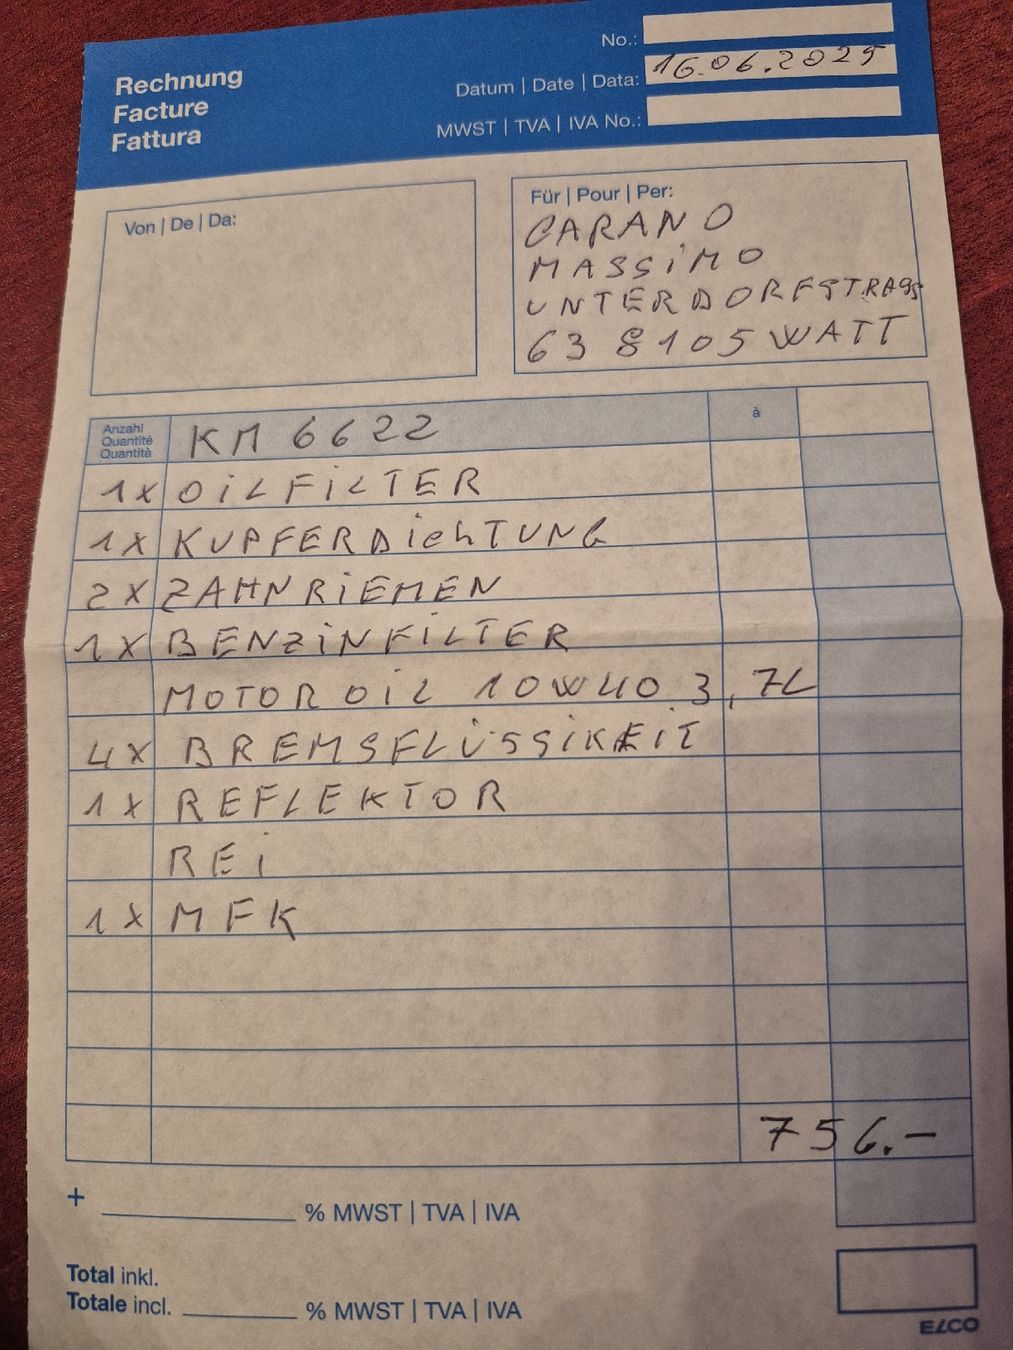 Rechnung
Facture
Fattura
No.:
Datum | Date | Data: 16.06.2025
MWST | TVA | IVA No.:
Von | De | Da:
Für | Pour | Per:
CARANO
MASSiMO
UNTERDORFSTRASS
63 8105 WATT
Anzahl
Quantité
Quantità
KM 6622
à
1x OiLFiLTER
1x KUPFERDichTUNG
2x ZAHNRiEMEN
1x BENZiNFiLTER
MOTOROiL 10W40 3,7L
4x BREMSFLÜSSiKEiT
1x REFLEKTOR
REi
1x MFK
756.–
+ % MWST | TVA | IVA
Total inkl.
Totale incl. % MWST | TVA | IVA
ELCO